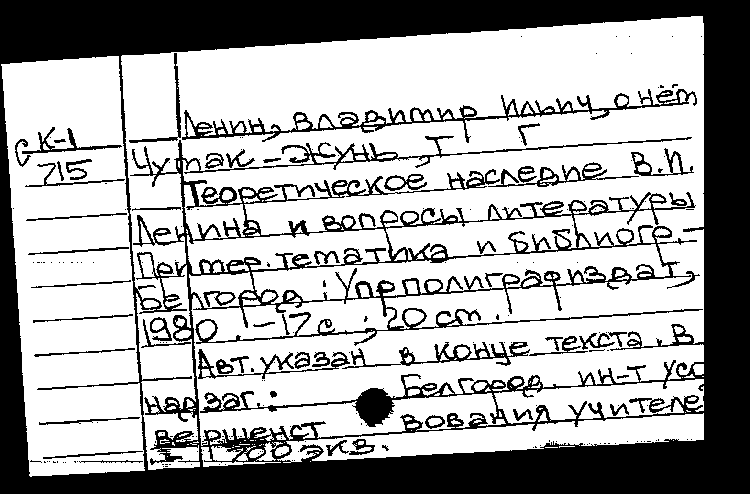 Ленин, Владимир Ильич, о нём
К-1
715
Чутак-Жунь, Т Г
Теоретическое наследие В.И.
Ленина и вопросы литературы
Библиогр. –
Белгород : Упрполиграфиздат,
1980. – 17 с. ; 20 cm.
Авт. указан в конце текста. В
надзаг.: Белгород. ин-т усо
вершенст вования учителе
700 экз.